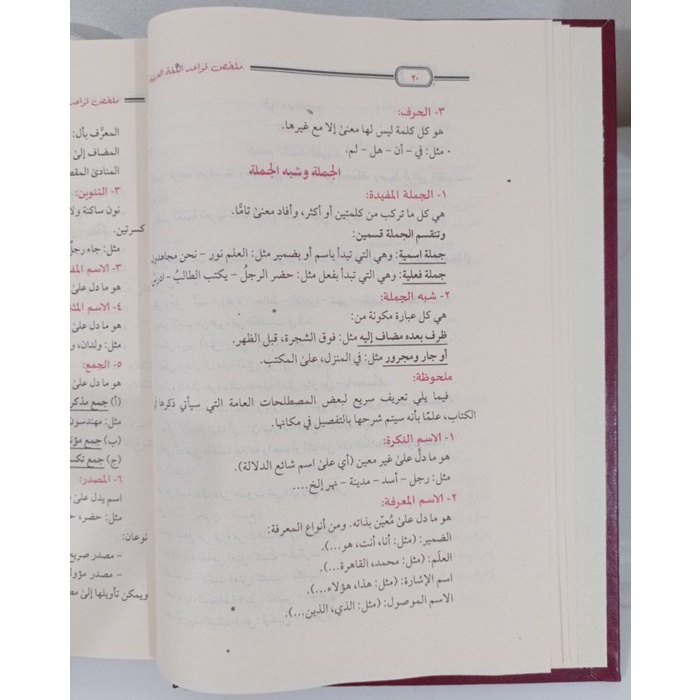 ٢٠
ملخص قواعد اللغة العربية
٣- الحرف:
هو كل كلمة ليس لها معنىً إلا مع غيرها.
• مثل: في – أن – هل – لم.
الجملة وشبه الجملة
١- الجملة المفيدة:
هي كل ما تركب من كلمتين أو أكثر، وأفاد معنىً تامًّا.
وتنقسم الجملة قسمين:
جملة اسمية: وهي التي تبدأ باسم أو بضمير مثل: العلم نور – نحن مجاهدون
جملة فعلية: وهي التي تبدأ بفعل مثل: حضر الرجلُ – يكتب الطالبُ –
٢- شبه الجملة:
هي كل عبارة مكونة من:
ظرف بعده مضاف إليه مثل: فوق الشجرة، قبل الظهر.
أو جار ومجرور مثل: في المنزل، على المكتب.
ملحوظة:
فيما يلي تعريف سريع لبعض المصطلحات العامة التي سيأتي ذكرها في
الكتاب، علمًا بأنه سيتم شرحها بالتفصيل في مكانها.
١- الاسم النكرة:
هو ما دلَّ على غير معين (أي على اسم شائع الدلالة).
مثل: رجل – أسد – مدينة – نهر إلخ....
٢- الاسم المعرفة:
هو ما دل على مُعيّن بذاته. ومن أنواع المعرفة:
الضمير: (مثل: أنا، أنت، هو...).
العلَم: (مثل: محمد، القاهرة...).
اسم الإشارة: (مثل: هذا، هؤلاء...).
الاسم الموصول: (مثل: الذي، الذين...).
ملخص
المعرَّف بأل:
المضاف إلى
المنادى
٣- التنوين:
نون ساكنة
كسرتين.
مثل: جاء
٣- الاسم
هو ما دل
٤- الاسم
هو ما دل
مثل: ولدان،
٥- الجمع:
هو ما دل
(أ) جمع مذكر
مثل: مهندسون
(ب) جمع
(ج) جمع
٦- المصدر:
اسم يدل
مثل: حضر،
نوعان:
– مصدر صريح
– مصدر
ويمكن تأويلها إلى